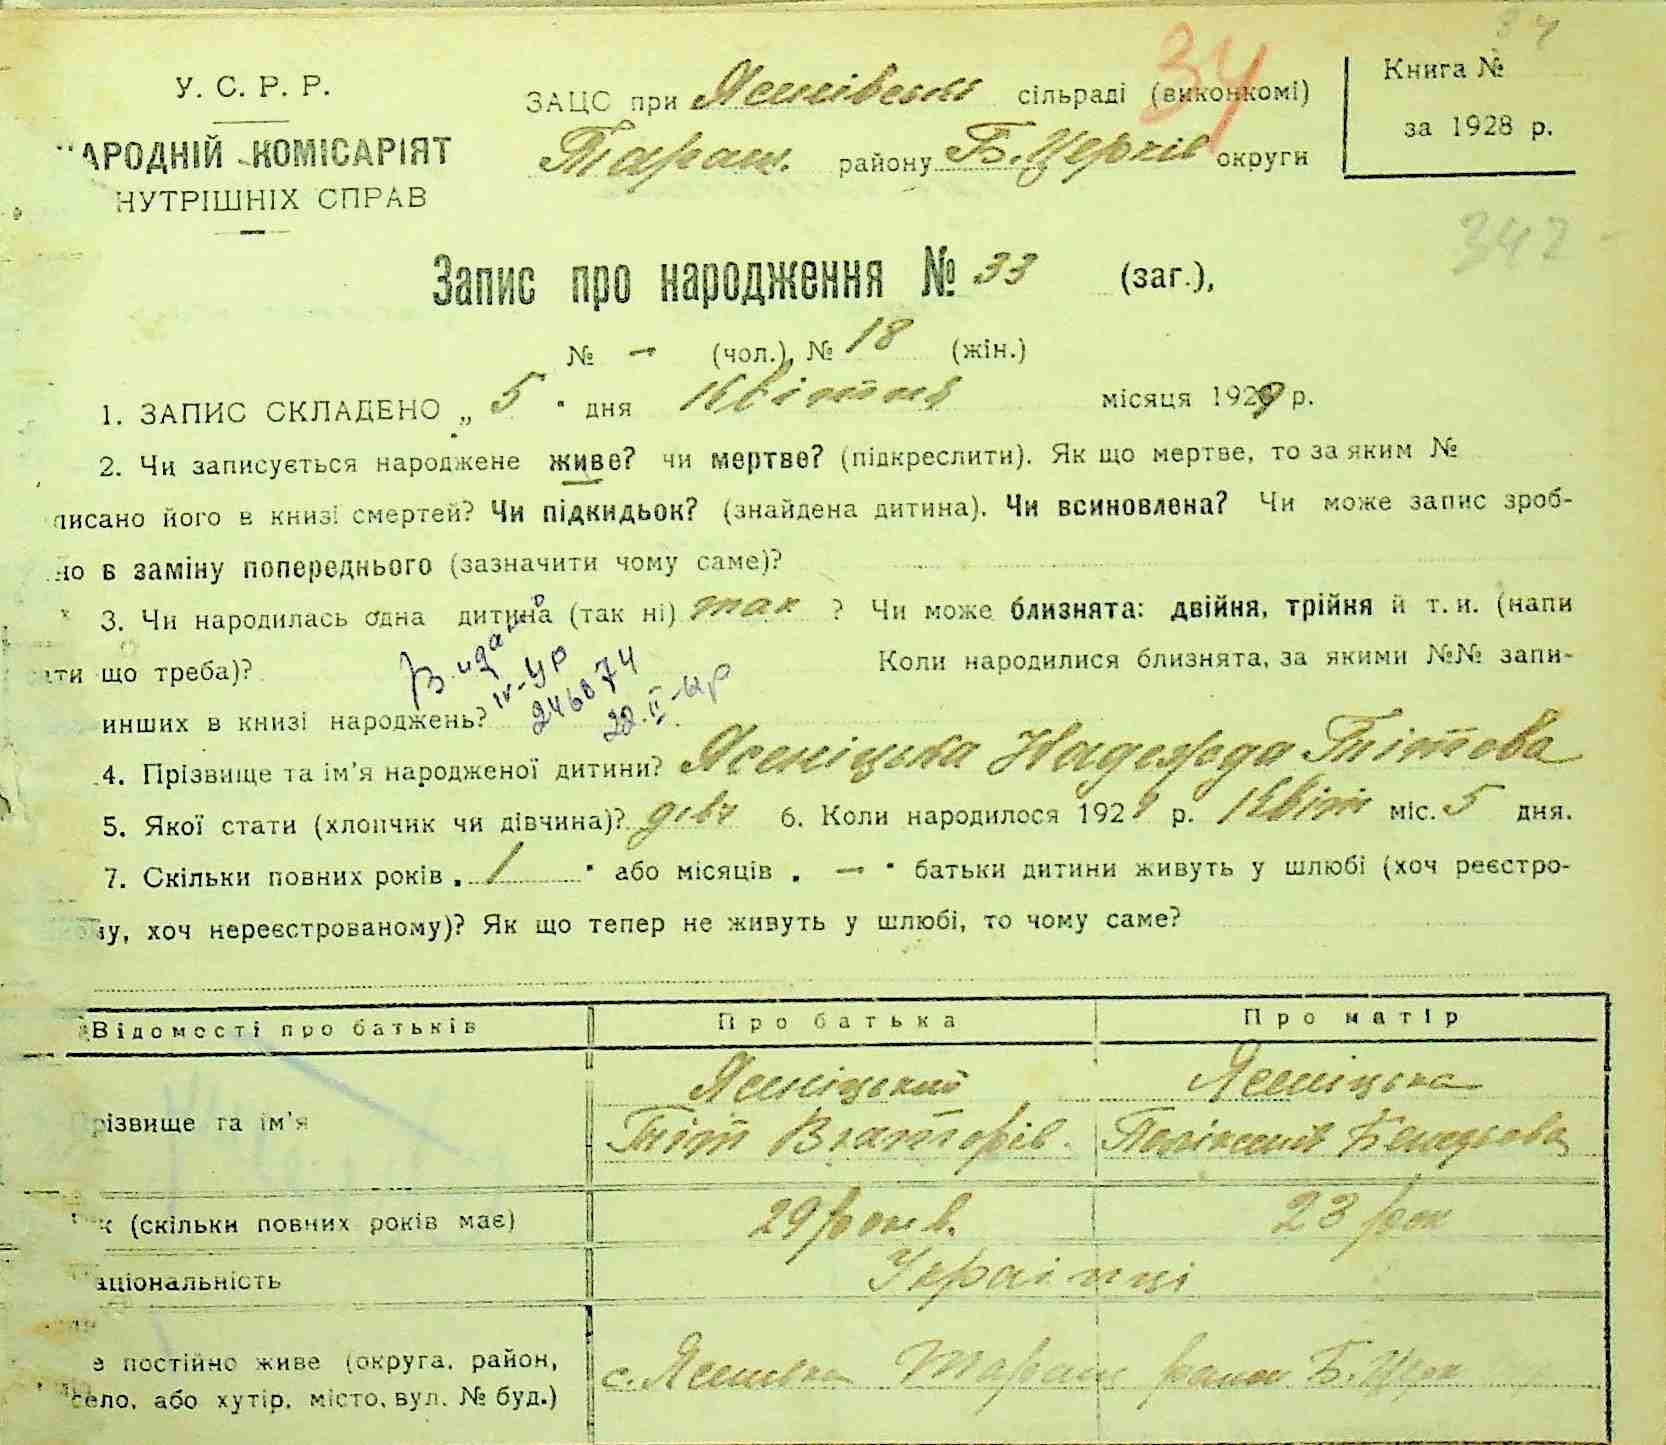 34
У. С. Р. Р.
АРОДНІЙ КОМІСАРІЯТ
НУТРІШНІХ СПРАВ
ЗАЦС при сільраді (виконкомі)
Таращ. району Б. Церків округи
34
Книга №
за 1928 р.
342
Запис про народження № 33 (заг.),
№ — (чол.), № 18 (жін.)
1. ЗАПИС СКЛАДЕНО „ 5 " дня Квітня місяця 1929 р.
2. Чи записується народжене живе? чи мертве? (підкреслити). Як що мертве, то за яким №
писано його в книзі смертей? Чи підкидьок? (знайдена дитина). Чи всиновлена? Чи може запис зроб-
но в заміну попереднього (зазначити чому саме)?
3. Чи народилась одна дитина (так ні) так ? Чи може близнята: двійня, трійня й т. и. (напи
ати що треба)? Коли народилися близнята, за якими №№ запи-
инших в книзі народжень?
IV-УР
246074
22.II-
4. Прізвище та ім'я народженої дитини? Ясеніцька Надежда Тітова
5. Якої стати (хлопчик чи дівчина)? дівч 6. Коли народилося 1929 р. Квітн міс. 5 дня.
7. Скільки повних років „ 1 " або місяців „ — " батьки дитини живуть у шлюбі (хоч реєстро-
ну, хоч нереєстрованому)? Як що тепер не живуть у шлюбі, то чому саме?
Відомості про батьків Про батька Про матір
різвище та ім'я Ясеніцький Ясеніцька
Тіт
к (скільки повних років має) 29 років. 23 рок
аціональність Українці
е постійно живе (округа, район,
село, або хутір, місто, вул. № буд.) с. Ясенівка Таращ район Б. Церк